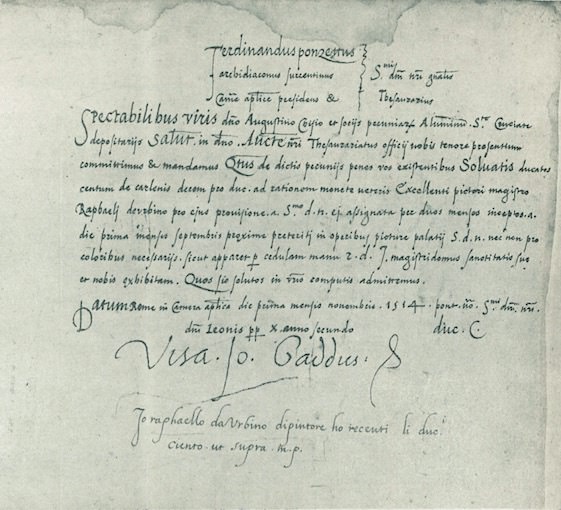 Ferdinandus ponzettus
archidiaconus surrentinus S.mi dni nri gnalis
Came aplice presidens & Thesaurarius
Spectabilibus viris dno Augustino Chisio et socijs pecuniarz Aluminū S.te Cruciate
depositarijs Salut. in dno. Aucte nri Thesaurariatus officij vobis tenore presentium
committimus & mandamus Qtus de dictis pecunijs penes vos existentibus Solvatis ducatos
centum de carlenis decem pro duc. ad rationem monete veteris Excellenti pictori magistro
Raphaeli de Urbino pro ejus provisione. a S.mo d. n. ej assignata per duos menses inceptos. a.
die prima mensis septembris proxime preteriti in operibus picture palatij S. d. n. nec non pro
coloribus necessarijs. sicut apparet p cedulam manu r. d. J. magistridomus sanctitatis sue
et nobis exhibitam. Quos sio solutos in vris computis admittemus.
Datum Rome in Camera aplica die prima mensis novembris. 1514 pont. S.mi dni. nri.
dni Leonis pp X. anno secundo duc. C
Visa. Jo. Gaddus.
Jo raphaello da Urbino dipintore ho receuti li duc.i
ciento. ut supra. m. p.